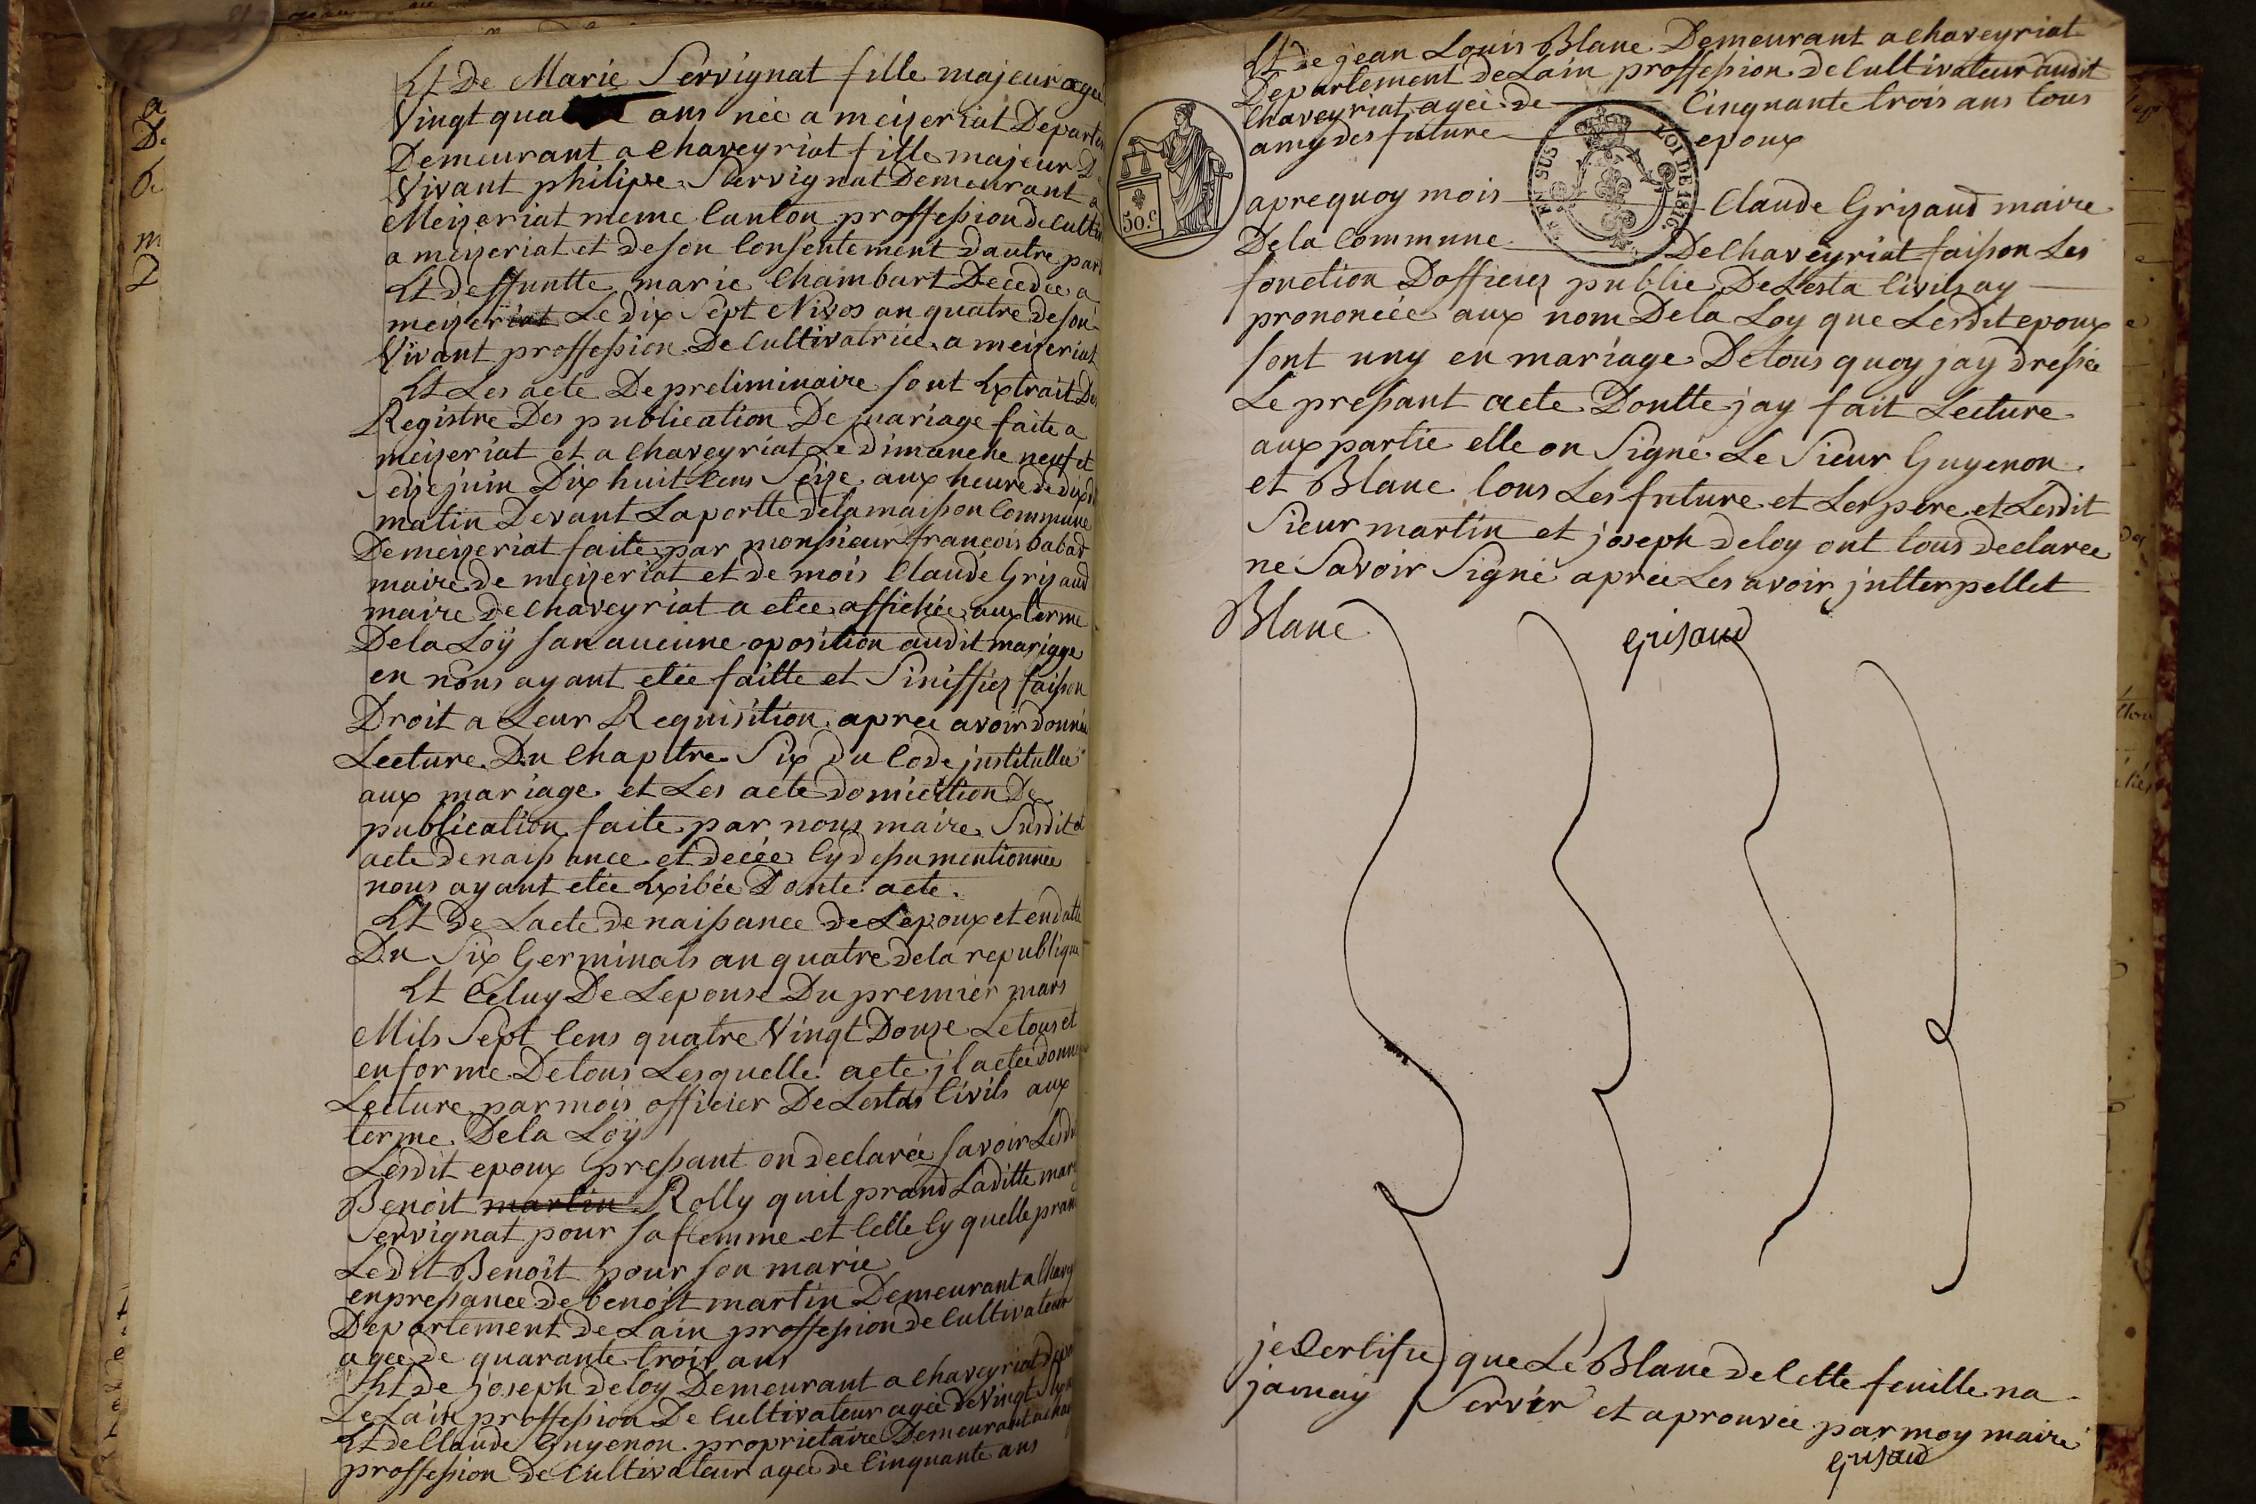 Et De Marie Servignat fille majeur agee
Vingt qua ans née a meizeriat Departem
Demeurant a Chaveyriat fille majeur D
Vivant philipe Servignat Demeurant a
Meizeriat meme Canton proffession de Cultiv
a meizeriat et de son Consentement dautre part
Et deffuntte marie Chambart Decedée a
meizeriat Le dix Sept Nivos an quatre de son
Vivant proffession De Cultivatrice a meizeriat
Et Les acte De preliminaire sont Extrait Des
Registre Des publication De mariage faite a
meizeriat et a Chaveyriat Le dimanche neuf et
Seize juin Dix huit Cens Seize aux heure de dix d
matin Devant La portte de la maison Commune
De meizeriat faite par monsieur francois babad
maire de meizeriat et de mois Claude Grizaud
maire de Chaveyriat a etée affichée aux terme
De la Loÿ san aucune oposition audit mariage
en nous ayant etée faitte et Siniffiez faison
Droit a Leur Requisition apree avoir donnée
Lecture Du Chapitre Six du Code justitullée
aux mariage et Les acte domicition De
publication faite par nous maire Susdit et
acte de naissance et decée Cy dessu mentionnée
nous ayant etée Exibée Donte acte.
Et De Lacte de naissance de Lepoux et en datte
Du Six Germinals an quatre de la republique
Et Celuy De Lepouse Du premier mars
Mils Sept Cens quatre Vingt Douze Le tous et
en forme De tous Lesquelle acte jl a etée donne
Lecture par mois officier De Lestas Civils aux
terme De la Loÿ
Lesdit epoux pressant on declarée savoir Ledit
Benoit martin Rolly quil prand Laditte mari
Servignat pour sa femme et Celle Cy quelle prand
Ledit Benoît pour son marie
en pressance de benoit martin Demeurant a Chavey
Departement de Lain proffession de Cultivateur
agée de quarante trois ans
Et de joseph deloy Demeurant a Chaveyriat depar
De Lain proffession De Cultivateur agée de Vingt
Et de Claude Guyenon proprietaire Demeurant a Chav
proffession de Cultivateur agée de Cinquante ans
Et de jean Louis Blanc Demeurant a Chaveyriat
Departement de Lain proffession de Cultivateur audit
Chaveyriat agée de Cinquante trois ans tous
amy des future epoux
50.c
TIMB EN SUS LOI DE 1816
apre quoy mois Claude Grizaud maire
De la Commune De Chaveyriat faison Les
fonction Dofficiez publie De Lesta Civils ay
prononcée aux nom De la Loy que Lesdit epoux
sont uny en mariage De tous quoy jay dressée
Le pressant acte Dontte jay fait Lecture
aux partie elle on Signé Le Sieur Guyenon
et Blanc tous Les future et Les pere et Lesdit
Sieur martin et joseph deloy ont tous declarée
ne Savoir Signé aprée Les avoir jntterpellet
Blanc
Grisaud
je Certifie que Le Blanc de Cette feuille na
jamaÿ Servir et aprouvée par moy maire
Grisaud